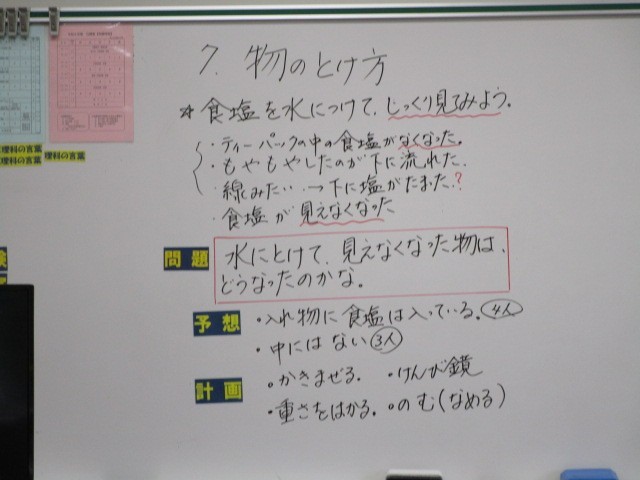 7. 物のとけ方
☆食塩を水につけて、じっくり見てみよう。
・ティーパックの中の食塩がなくなった。
・もやもやしたのが下に流れた。
・線みたい → 下に塩がたまった?
・食塩が見えなくなった
問題 水にとけて、見えなくなった物は、
どうなったのかな。
予想 ・入れ物に食塩は入っている。4人
・中にはない 3人
計画 ・かきまぜる。 ・けんび鏡
・重さをはかる。 ・のむ(なめる)
理科の言葉
理科の言葉
理科の言葉
験